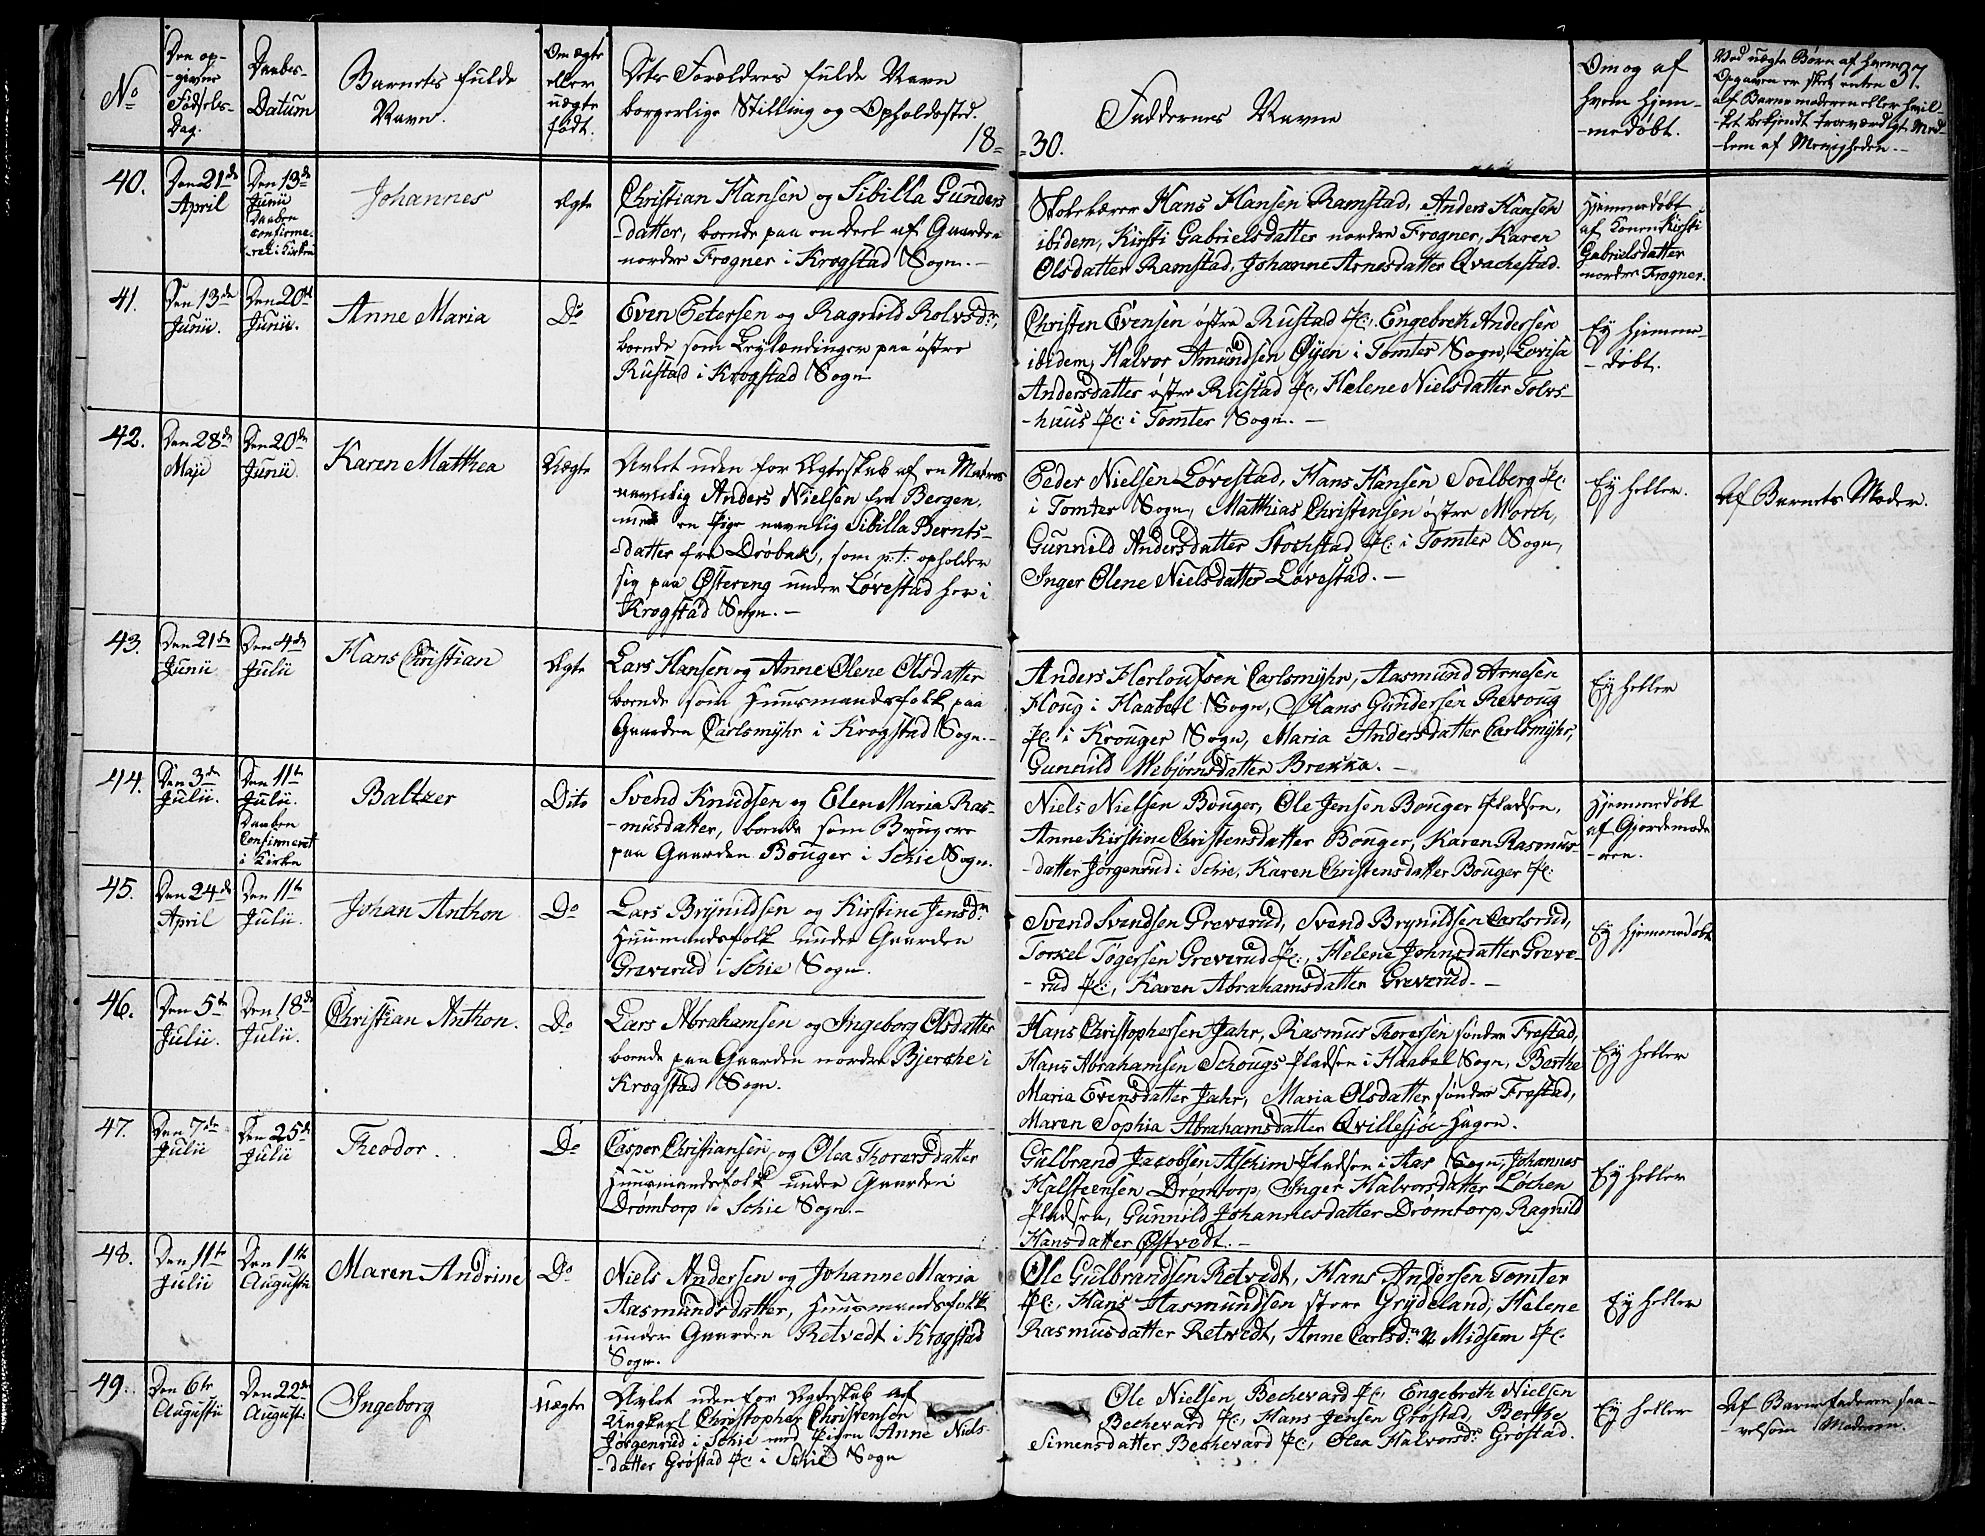 No
Den op-
-givne
Fødsels-
Dag.
Daabs-
Datum
Barnets fulde
Navn.
Om ægte
eller
uægte
født.
Dets Forældres fulde Navn
borgerlige Stilling og Opholdssted.
18=
=30.
Faddernes Navne
Om og af
hvem hjem-
-medøbt.
37.
Ved uægte Børn af hvem
Opgaven er skeet enten
af Barnemoderen eller hvil-
-ket bekjendt troværdigt Med-
-lem af Menigheden.-
40.
Den 21de
April
Den 13de
Junii
Daaben
confirme-
-ret i Kirken
Johannes
Ægte
Christian Hansen og Sibilla Gunders
-datter, boende paa en Deel af Gaarden
nordre Frogner i Krogstad Sogn.-
Skolelærer Hans Hansen Ramstad, Anders Hansen
ibidem, Kirsti Gabrielsdatter nordre Frogner, Karen
Olsdatter Ramstad, Johanne Arnesdatter Qvachestad.
Hjemmedøbt
af Konen Kirsti
Gabrielsdatter
nordre Frogner.
41.
Den 13de
Junii.
Den 20de
Junii.
Anne Maria
Do
Even Petersen og Ragnild Rolvsdr,
boende som Leylændinger paa østre
Rustad i Krogstad Sogn
Christen Evensen østre Rustad Pl:, Engebreth Andersen
ibidem, Halvor Amundsen Øyen i Tomter Sogn, Lovisa
Andersdatter østre Rustad Pl:, Helene Nielsdatter Tolvs-
-huus Pl: i Tomter Sogn.-
Ey hjemme-
-døbt.
42.
Den 28de
Maji
Den 20de
Junii.
Karen Matthea
Uægte
Avlet uden for Ægteskab af en Matros
navnlig Anders Nielsen fra Bergen,
med en Pige navnlig Sibilla Bernts-
-datter fra Drøbak, som p:t: opholder
sig paa Østereng under Løvestad her i
Krogstad Sogn.-
Peder Nielsen Løvestad, Hans Hansen Solberg Pl:
i Tomter Sogn, Matthias Christensen østre Morch,
Gunnild Andersdatter Stochstad Pl: i Tomter Sogn,
Inger Olene Nielsdatter Løvestad.-
Ey heller.
Af Barnets Moder.
43.
Den 21de
Junii
Den 4de
Julii
Hans Christian
Ægte
Lars Hansen og Anne Olene Olsdatter
boende som Huusmandsfolk paa
Gaarden Carlsmyhr i Krogstad Sogn.-
Anders Herloufsen Carlsmyhr, Aasmund Arnesen
Houg i Haabøl Sogn, Hans Gundersen Revoug
Pl: i Krouger Sogn, Maria Andersdatter Carlsmyhr,
Gunnild Webjørnsdatter Brekka.-
Ey heller
44.
Den 3de
Julii.
Den 11te
Julii.
Daaben
Confirmeret
i Kirken
Baltzer
Dito
Svend Knudsen og Elen Maria Ras-
-musdatter, boende som Brugere
paa Gaarden Bouger i Schie Sogn.
Niels Nielsen Bouger, Ole Jensen Bouger Pladsen,
Anne Kirstine Christensdatter Bouger, Karen Rasmus-
-datter Jørgenrud i Schie, Karen Christensdatter Bouger Pl:
Hjemmedøbt
af Gjordemode
-ren.
45.
Den 24de
April
Den 11te
Julii.
Johan Anthon
Do
Lars Brynildsen og Kirstine Jensdr
Huusmandsfolk under Gaarden
Greverud i Schie Sogn.
Svend Svendsen Greverud, Svend Brynildsen Carlsrud,
Torkel Togersen Greverud Pl:, Helene Johnsdatter Greve-
-rud Pl:, Karen Abrahamsdatter Greverud.-
Ey hjemmedøbt
46.
Den 5te
Julii.
Den 18de
Julii.
Christian Anthon.
Do
Lars Abrahamsen og Ingeborg Olsdatter
boende paa Gaarden nordre Bjerche i
Krogstad Sogn.
Hans Christophersen Jahr, Rasmus Thorersen søndre Frestad,
Hans Abrahamsen Schougs Pladsen i Haabøl Sogn, Berthe
Maria Evensdatter Jahr, Maria Olsdatter søndre Frestad,
Maren Sophia Abrahamsdatter Qvillesjøe Hagen.
Ey heller
47.
Den 7de
Julii
Den 25de
Julii
Theodor.
Do
Casper Christiansen og Olea Thorersdatter
Huusmandsfolk under Gaarden
Drømtorp i Schie Sogn.-
Gulbrand Jacobsen Aschim Pladsen i Aas Sogn, Johannes
Halsteensen Drømtorp, Inger Halvorsdatter Løchen
Pladsen, Gunnild Johannesdatter Drømtorp, Ragnild
Hansdatter Østvedt.-
Ey heller
48.
Den 11te
Julii
Den 1ste
Augustii
Maren Andrine
Do
Niels Andersen og Johanne Maria
Aasmundsdatter, Huusmandsfolk
under Gaarden Retvedt i Krogstad
Sogn.
Ole Gulbrandsen Retvedt, Hans Andersen Tomter
Pl:, Hans Aasmundsen store Grydeland, Helene
Rasmusdatter Retvedt, Anne Carlsdr N. Midsem Pl:
Ey heller
49.
Den 6te
Augustii
Den 22de
Augusti
Ingeborg
Uægte
Avlet uden for Ægteskab af
Ungkarl Christopher Christensen
Jørgenrud i Schie med Pigen Anne Niels-
-datter Grøstad Pl: i Schie Sogn
Ole Nielsen Bechevard Pl: Engebreth Nielsen
Bechevard Pl:, Hans Jensen Grøstad, Berthe
Simensdatter Bechevard Pl:, Olea Halvorsdr Grøstad.
Ey heller
Af Barnefaderen saa-
-velsom Moderen